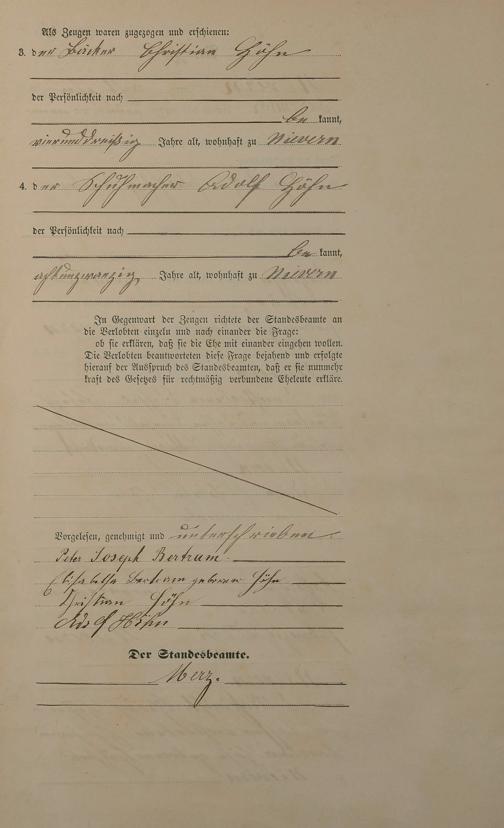 Als Zeugen waren zugezogen und erschienen:
3. der Bäcker Christian Höhn
der Persönlichkeit nach
be kannt,
vierunddreißig Jahre alt, wohnhaft zu Nievern
4. der Schuhmacher Adolf Höhn
der Persönlichkeit nach
be kannt,
achtundzwanzig Jahre alt, wohnhaft zu Nievern
In Gegenwart der Zeugen richtete der Standesbeamte an
die Verlobten einzeln und nach einander die Frage:
ob sie erklären, daß sie die Ehe mit einander eingehen wollen.
Die Verlobten beantworteten diese Frage bejahend und erfolgte
hierauf der Ausspruch des Standesbeamten, daß er sie nunmehr
kraft des Gesetzes für rechtmäßig verbundene Eheleute erkläre.
Vorgelesen, genehmigt und unterschrieben
Peter Joseph Bertram
Elisabetha Bertram geborene Höhn
Christian Höhn
Adolf Höhn
Der Standesbeamte.
Merz.